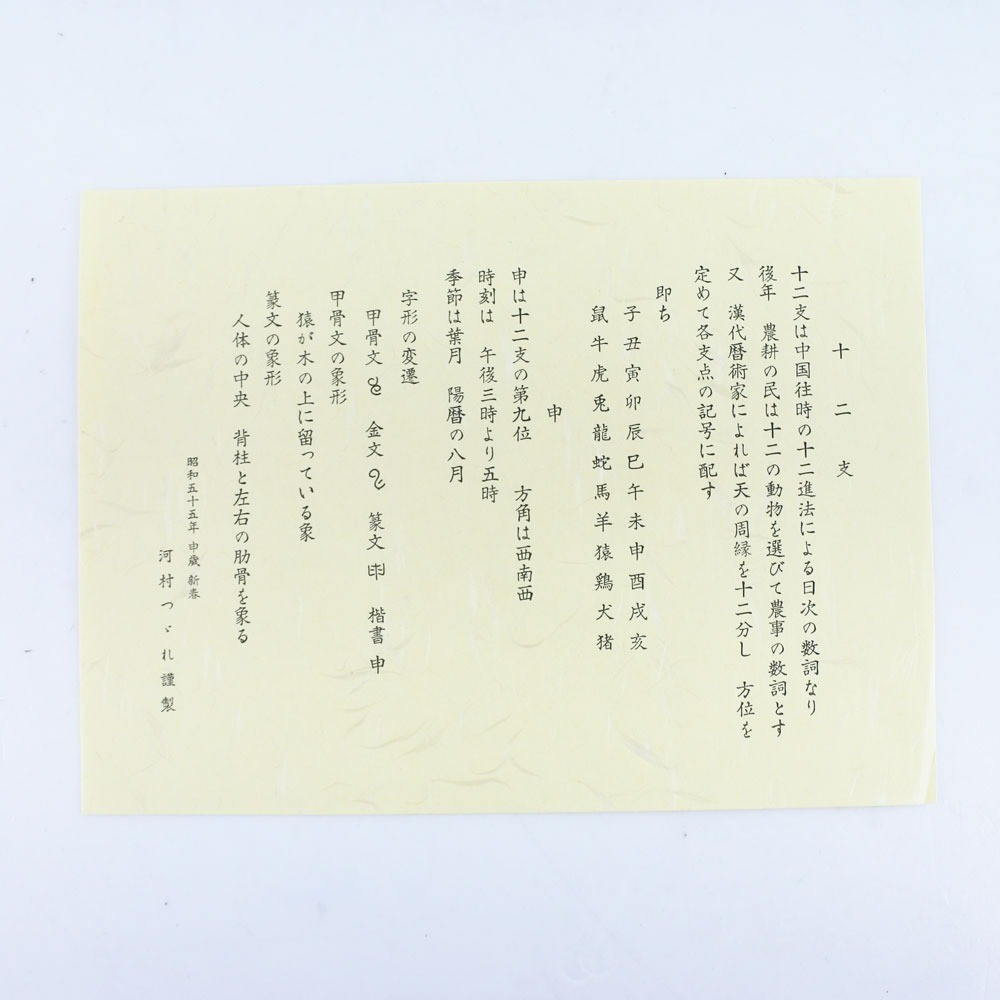 十二支
十二支は中国往時の十二進法による日次の数詞なり
後年　農耕の民は十二の動物を選びて農事の数詞とす
又　漢代暦術家によれば天の周縁を十二分し　方位を
定めて各支点の記号に配す
即ち
子丑寅卯辰巳午未申酉戌亥
鼠牛虎兎龍蛇馬羊猿鶏犬猪
申
申は十二支の第九位　方角は西南西
時刻は　午後三時より五時
季節は葉月　陽暦の八月
字形の変遷
甲骨文　金文　篆文　楷書 申
甲骨文の象形
猿が木の上に留っている象
篆文の象形
人体の中央　背柱と左右の肋骨を象る
昭和五十五年 申歳 新春
河村つゞれ謹製